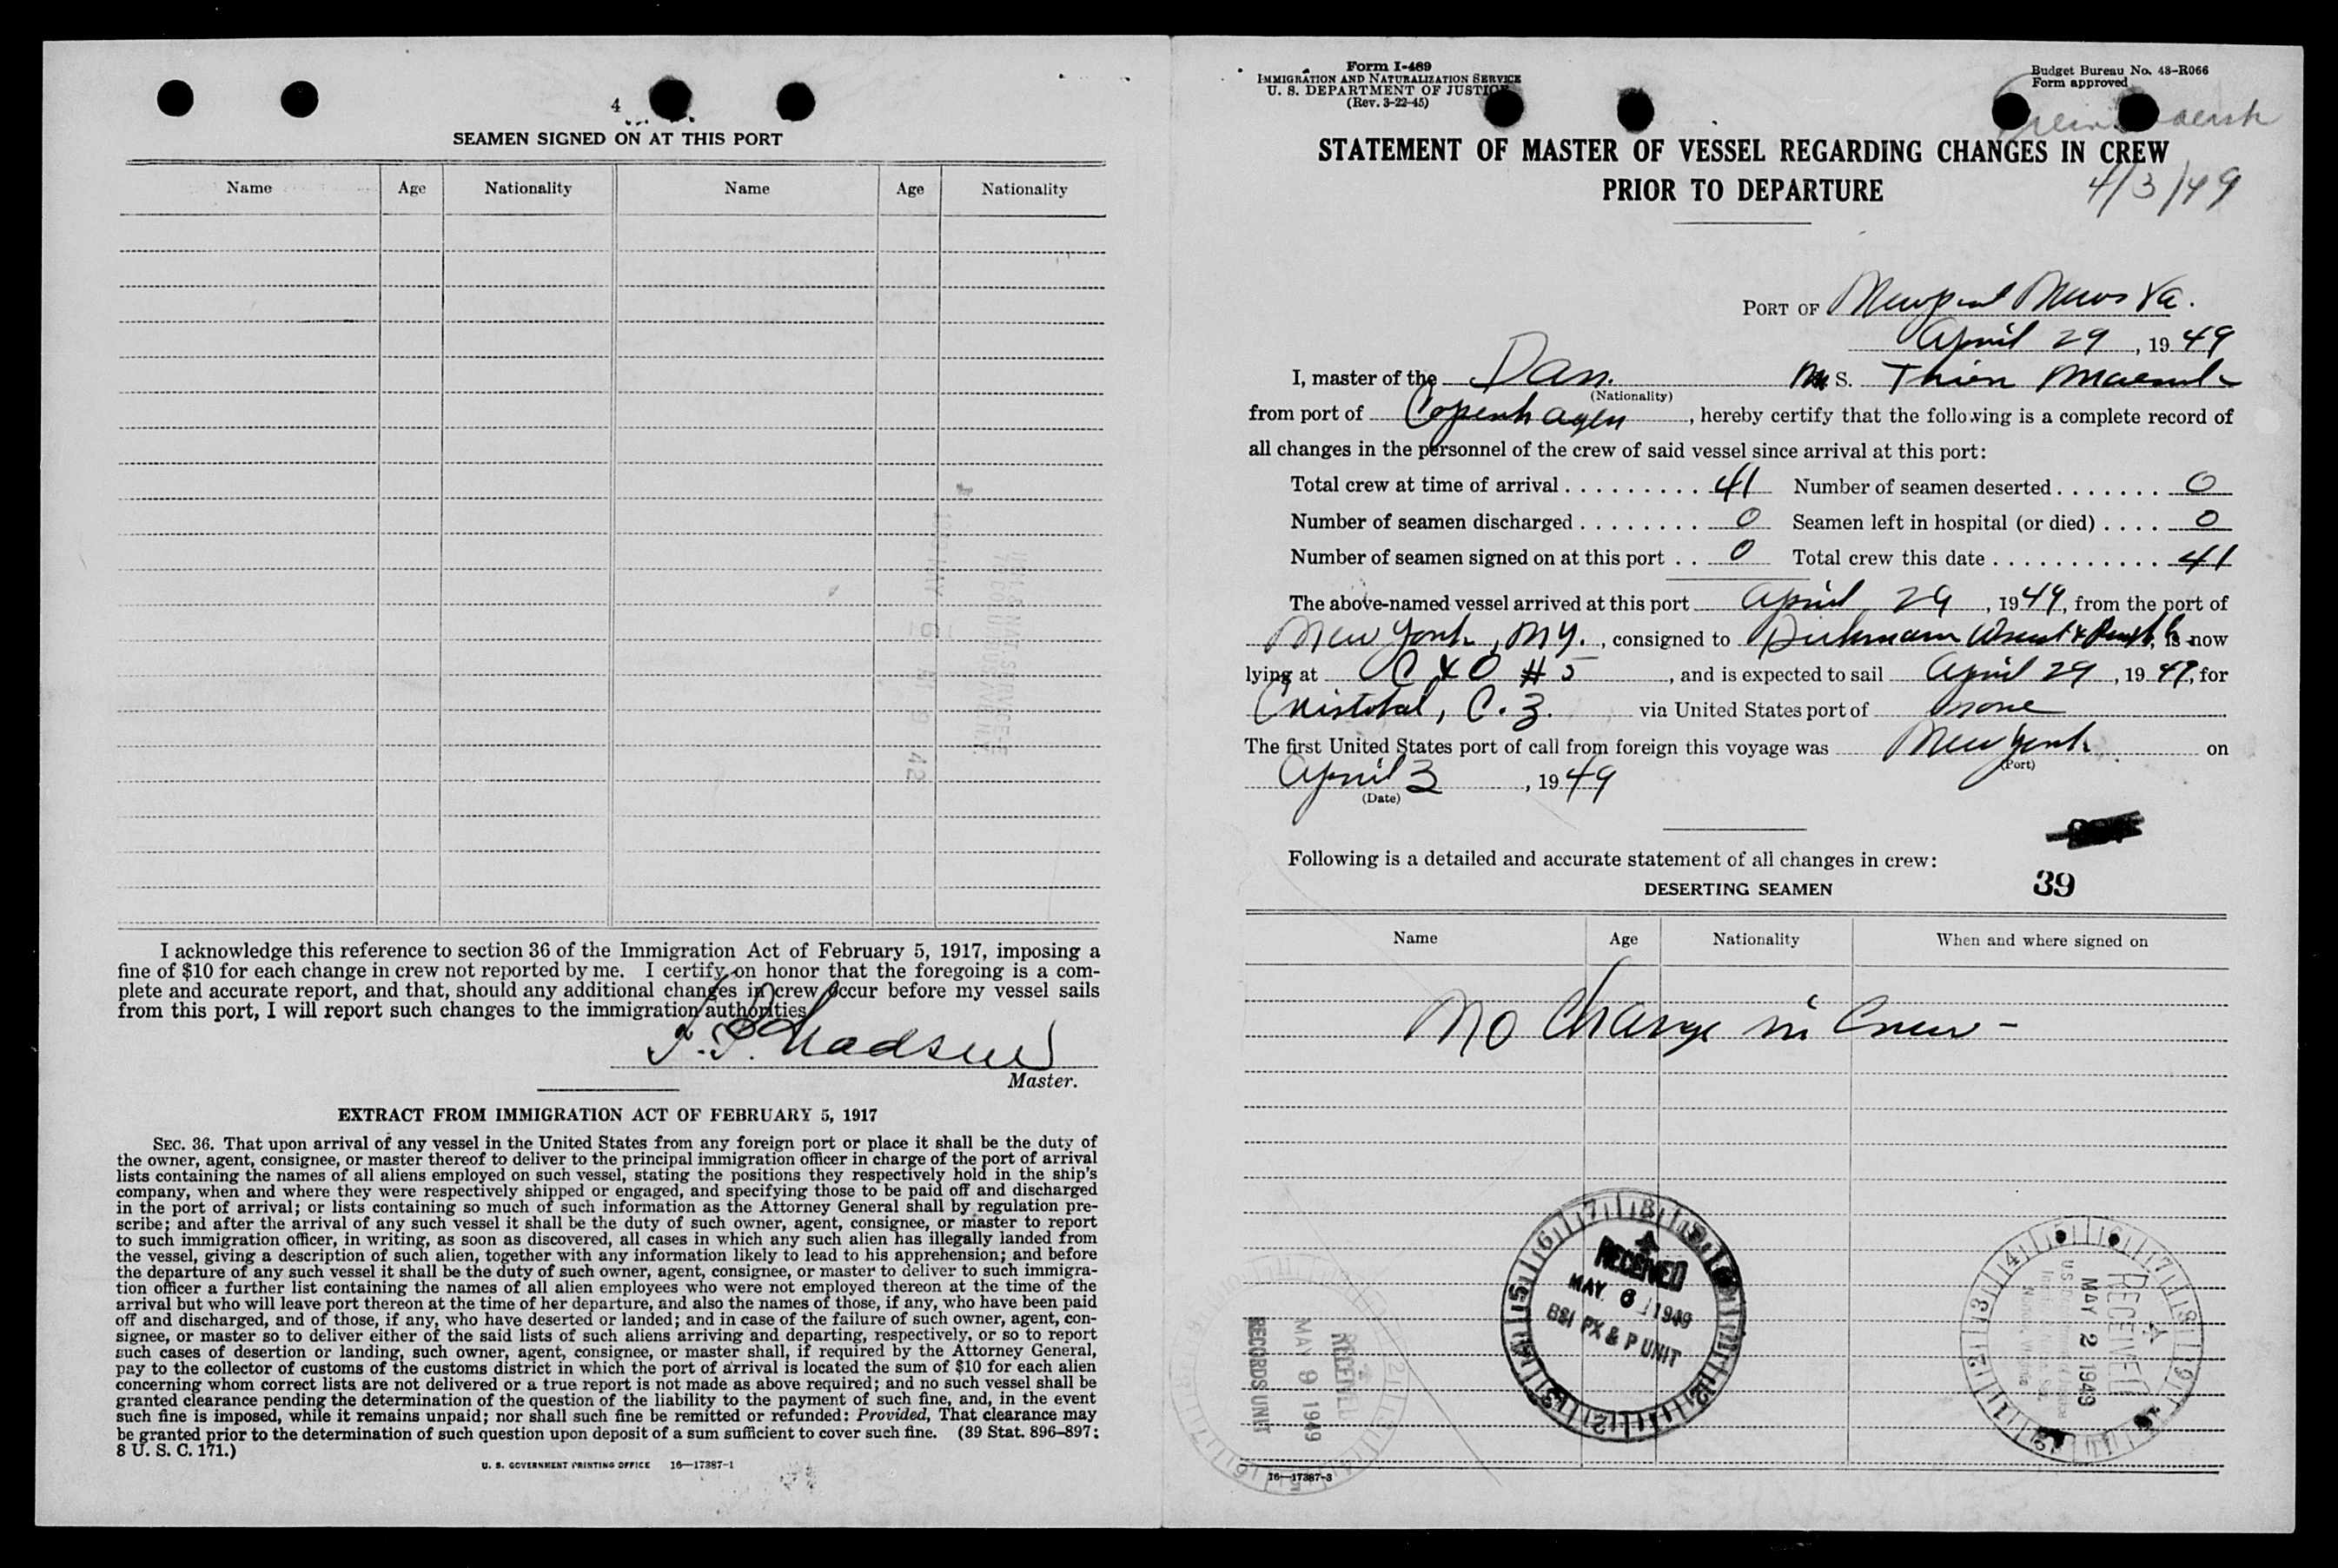 4
SEAMEN SIGNED ON AT THIS PORT
Name Age Nationality Name Age Nationality
I acknowledge this reference to section 36 of the Immigration Act of February 5, 1917, imposing a
fine of $10 for each change in crew not reported by me. I certify on honor that the foregoing is a com-
plete and accurate report, and that, should any additional changes in crew occur before my vessel sails
from this port, I will report such changes to the immigration authorities.
Madsen
Master.
EXTRACT FROM IMMIGRATION ACT OF FEBRUARY 5, 1917
SEC. 36. That upon arrival of any vessel in the United States from any foreign port or place it shall be the duty of
the owner, agent, consignee, or master thereof to deliver to the principal immigration officer in charge of the port of arrival
lists containing the names of all aliens employed on such vessel, stating the positions they respectively hold in the ship's
company, when and where they were respectively shipped or engaged, and specifying those to be paid off and discharged
in the port of arrival; or lists containing so much of such information as the Attorney General shall by regulation pre-
scribe; and after the arrival of any such vessel it shall be the duty of such owner, agent, consignee, or master to report
to such immigration officer, in writing, as soon as discovered, all cases in which any such alien has illegally landed from
the vessel, giving a description of such alien, together with any information likely to lead to his apprehension; and before
the departure of any such vessel it shall be the duty of such owner, agent, consignee, or master to deliver to such immigra-
tion officer a further list containing the names of all alien employees who were not employed thereon at the time of the
arrival but who will leave port thereon at the time of her departure, and also the names of those, if any, who have been paid
off and discharged, and of those, if any, who have deserted or landed; and in case of the failure of such owner, agent, con-
signee, or master so to deliver either of the said lists of such aliens arriving and departing, respectively, or so to report
such cases of desertion or landing, such owner, agent, consignee, or master shall, if required by the Attorney General,
pay to the collector of customs of the customs district in which the port of arrival is located the sum of $10 for each alien
concerning whom correct lists are not delivered or a true report is not made as above required; and no such vessel shall be
granted clearance pending the determination of the question of the liability to the payment of such fine, and, in the event
such fine is imposed, while it remains unpaid; nor shall such fine be remitted or refunded: Provided, That clearance may
be granted prior to the determination of such question upon deposit of a sum sufficient to cover such fine. (39 Stat. 896–897;
8 U. S. C. 171.)
U. S. GOVERNMENT PRINTING OFFICE 16—17387-1
Form I-489
IMMIGRATION AND NATURALIZATION SERVICE
U. S. DEPARTMENT OF JUSTICE
(Rev. 3-22-45)
Budget Bureau No. 43–R066
Form approved
STATEMENT OF MASTER OF VESSEL REGARDING CHANGES IN CREW
PRIOR TO DEPARTURE
4/3/49
PORT OF Newport News Va.
April 29, 1949
I, master of the Dan. M. S. Thien Maersk
(Nationality)
from port of Copenhagen, hereby certify that the following is a complete record of
all changes in the personnel of the crew of said vessel since arrival at this port:
Total crew at time of arrival . . . . . . . . . . 41 Number of seamen deserted . . . . . . . 0
Number of seamen discharged . . . . . . . . 0 Seamen left in hospital (or died) . . . . 0
Number of seamen signed on at this port . . 0 Total crew this date . . . . . . . . . . . 41
The above-named vessel arrived at this port April 29, 1949, from the port of
New York, NY., consigned to , is now
lying at C & O # 5, and is expected to sail April 29, 1949, for
Cristobal, C. Z. via United States port of none
The first United States port of call from foreign this voyage was New York on
(Port)
April 3, 1949
(Date)
Following is a detailed and accurate statement of all changes in crew:
DESERTING SEAMEN 39
Name Age Nationality When and where signed on
No Change in Crew -
RECEIVED
MAY 6 1949
BSI PX & P UNIT
RECEIVED
MAY 2 1949
RECEIVED
MAY 9 1949
RECORDS UNIT
16—17387-3